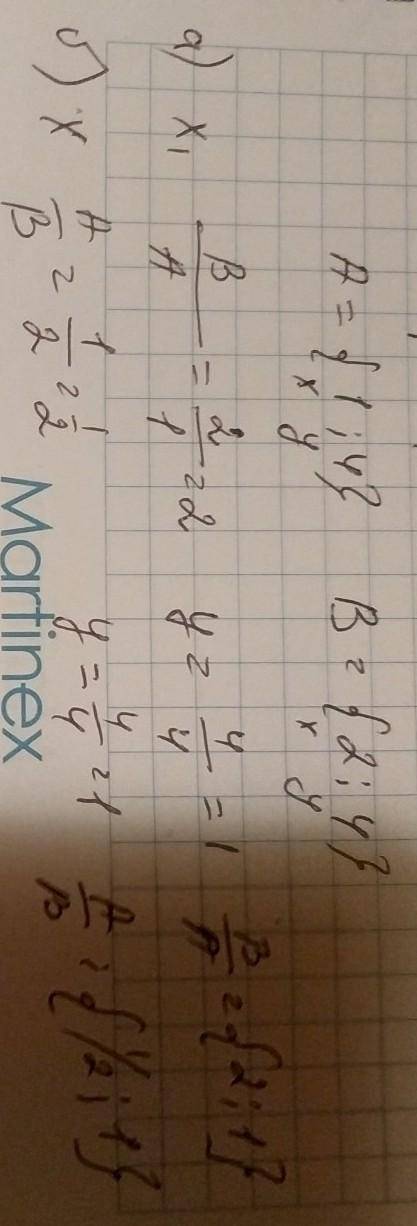 A = {1; 4} B = {2; 4}
x y x y
a) x₁ B/A = 2/1 = 2 y = 4/4 = 1 B/A = {2; 1}
б) x A/B = 1/2 = 1/2 y = 4/4 = 1 A/B = {1/2; 1}
Martinex